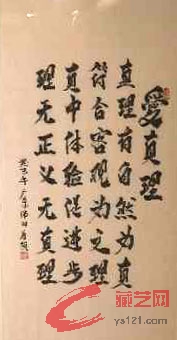 愛真理
真理有自然为真
符合客观为之理
真中体验促进步
理无正义无真理
癸亥年
藏艺网
ys121.com